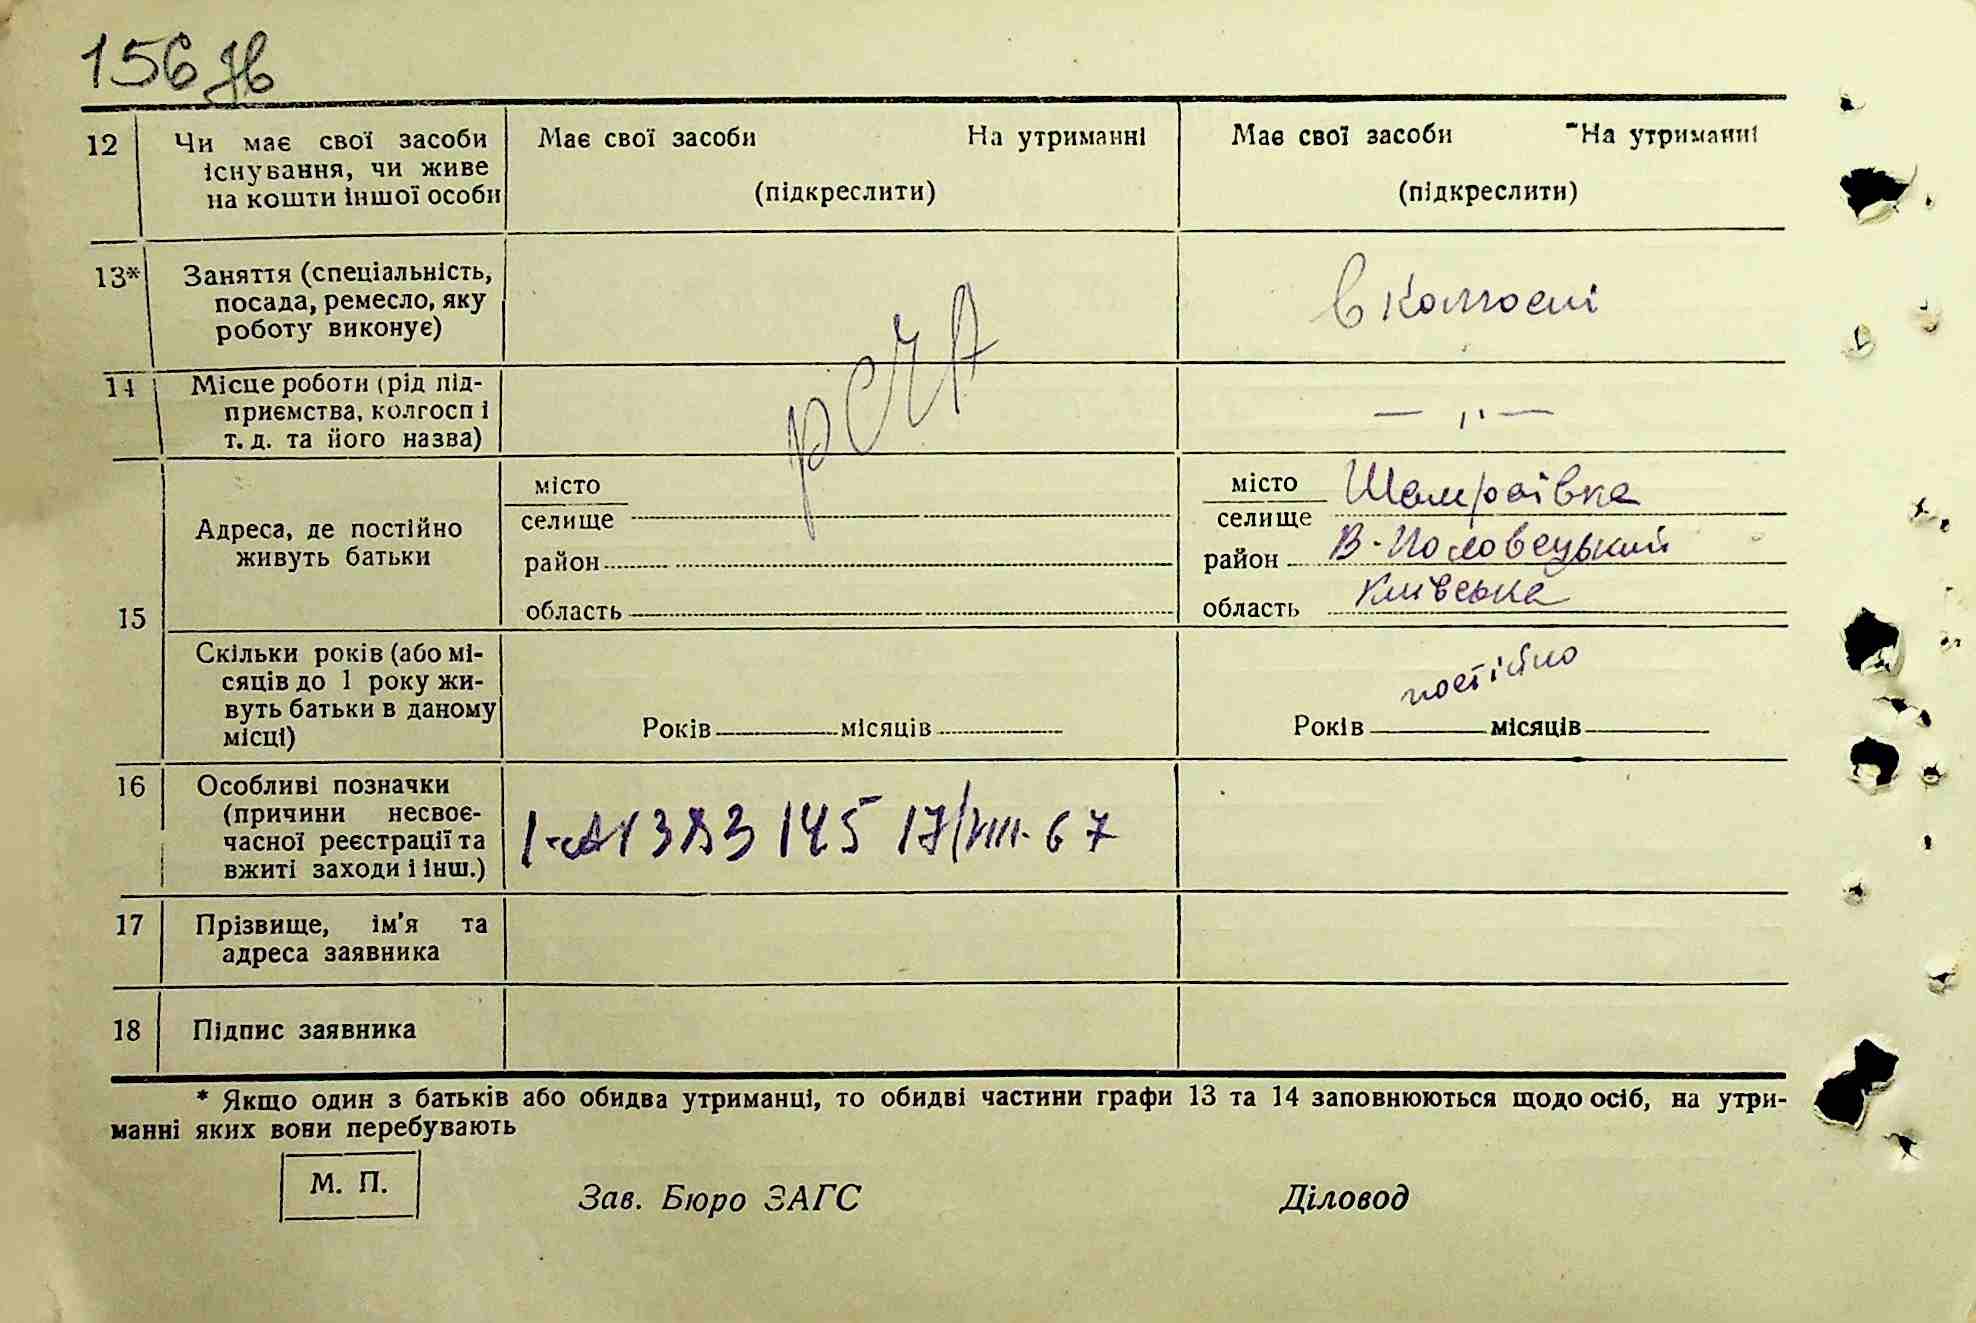 156
12 Чи має свої засоби Має свої засоби На утриманні Має свої засоби На утриманні
існування, чи живе
на кошти іншої особи (підкреслити) (підкреслити)
13* Заняття (спеціальність, в колгоспі
посада, ремесло, яку
роботу виконує)
РСЧА
14 Місце роботи (рід під-
приємства, колгосп і — ,, —
т. д. та його назва)
15 Адреса, де постійно
живуть батьки
місто місто Шамраївка
селище селище
район район В-Половецький
область область Київська
Скільки років (або мі-
сяців до 1 року жи-
вуть батьки в даному постійно
місці) Років місяців Років місяців
16 Особливі позначки
(причини несвоє-
часної реєстрації та 145 17/VIII-67
вжиті заходи і інш.)
17 Прізвище, ім'я та
адреса заявника
18 Підпис заявника
* Якщо один з батьків або обидва утриманці, то обидві частини графи 13 та 14 заповнюються щодо осіб, на утри-
манні яких вони перебувають
М. П. Зав. Бюро ЗАГС Діловод